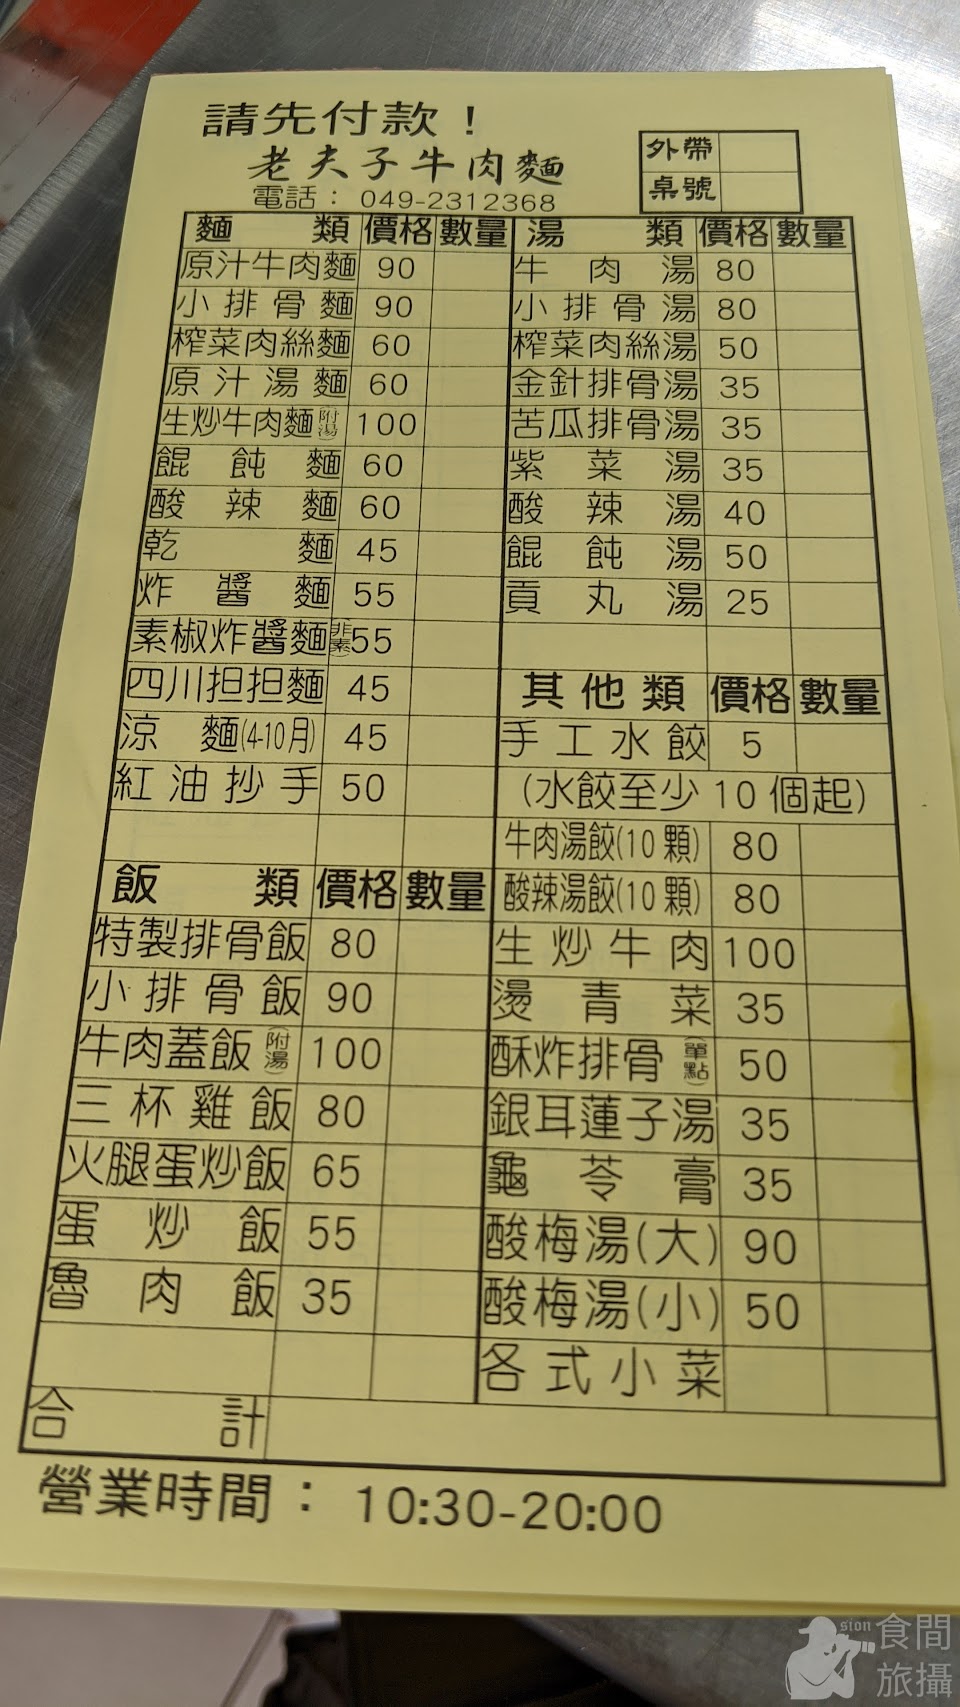 請先付款！
老夫子牛肉麵
電話： 049-2312368
外帶
桌號
麵類 價格 數量
原汁牛肉麵 90
小排骨麵 90
榨菜肉絲麵 60
原汁湯麵 60
生炒牛肉麵(附湯) 100
餛飩麵 60
酸辣麵 60
乾麵 45
炸醬麵 55
素椒炸醬麵(非素) 55
四川担担麵 45
涼麵(4-10月) 45
紅油抄手 50
飯類 價格 數量
特製排骨飯 80
小排骨飯 90
牛肉蓋飯(附湯) 100
三杯雞飯 80
火腿蛋炒飯 65
蛋炒飯 55
魯肉飯 35
湯類 價格 數量
牛肉湯 80
小排骨湯 80
榨菜肉絲湯 50
金針排骨湯 35
苦瓜排骨湯 35
紫菜湯 35
酸辣湯 40
餛飩湯 50
貢丸湯 25
其他類 價格 數量
手工水餃 5
(水餃至少10個起)
牛肉湯餃(10顆) 80
酸辣湯餃(10顆) 80
生炒牛肉 100
燙青菜 35
酥炸排骨(單點) 50
銀耳蓮子湯 35
龜苓膏 35
酸梅湯(大) 90
酸梅湯(小) 50
各式小菜
合計
營業時間： 10:30-20:00
sion
食間
旅攝